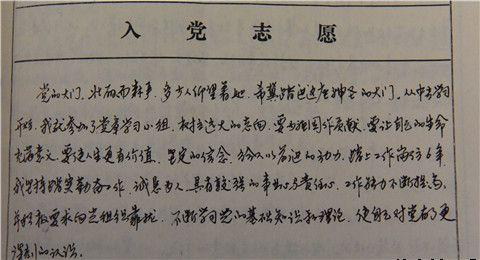 入党志愿
党的大门,壮丽而庄严,多少人仰望着她,希冀踏进这座神圣的大门。从中专学习
开始,我就参加了党章学习小组,树立远大的志向,要为祖国作贡献,要让自己的生命
充满意义,要使人生更有价值,坚定的信念,给人以前进的动力。踏上工作岗位6年,
我坚持踏实勤奋工作,诚恳为人,具有较强的事业心与责任心,工作能力不断提高,
并积极要求向党组织靠拢,不断学习党的基础知识和理论,使自己对党有了更
深刻的认识。